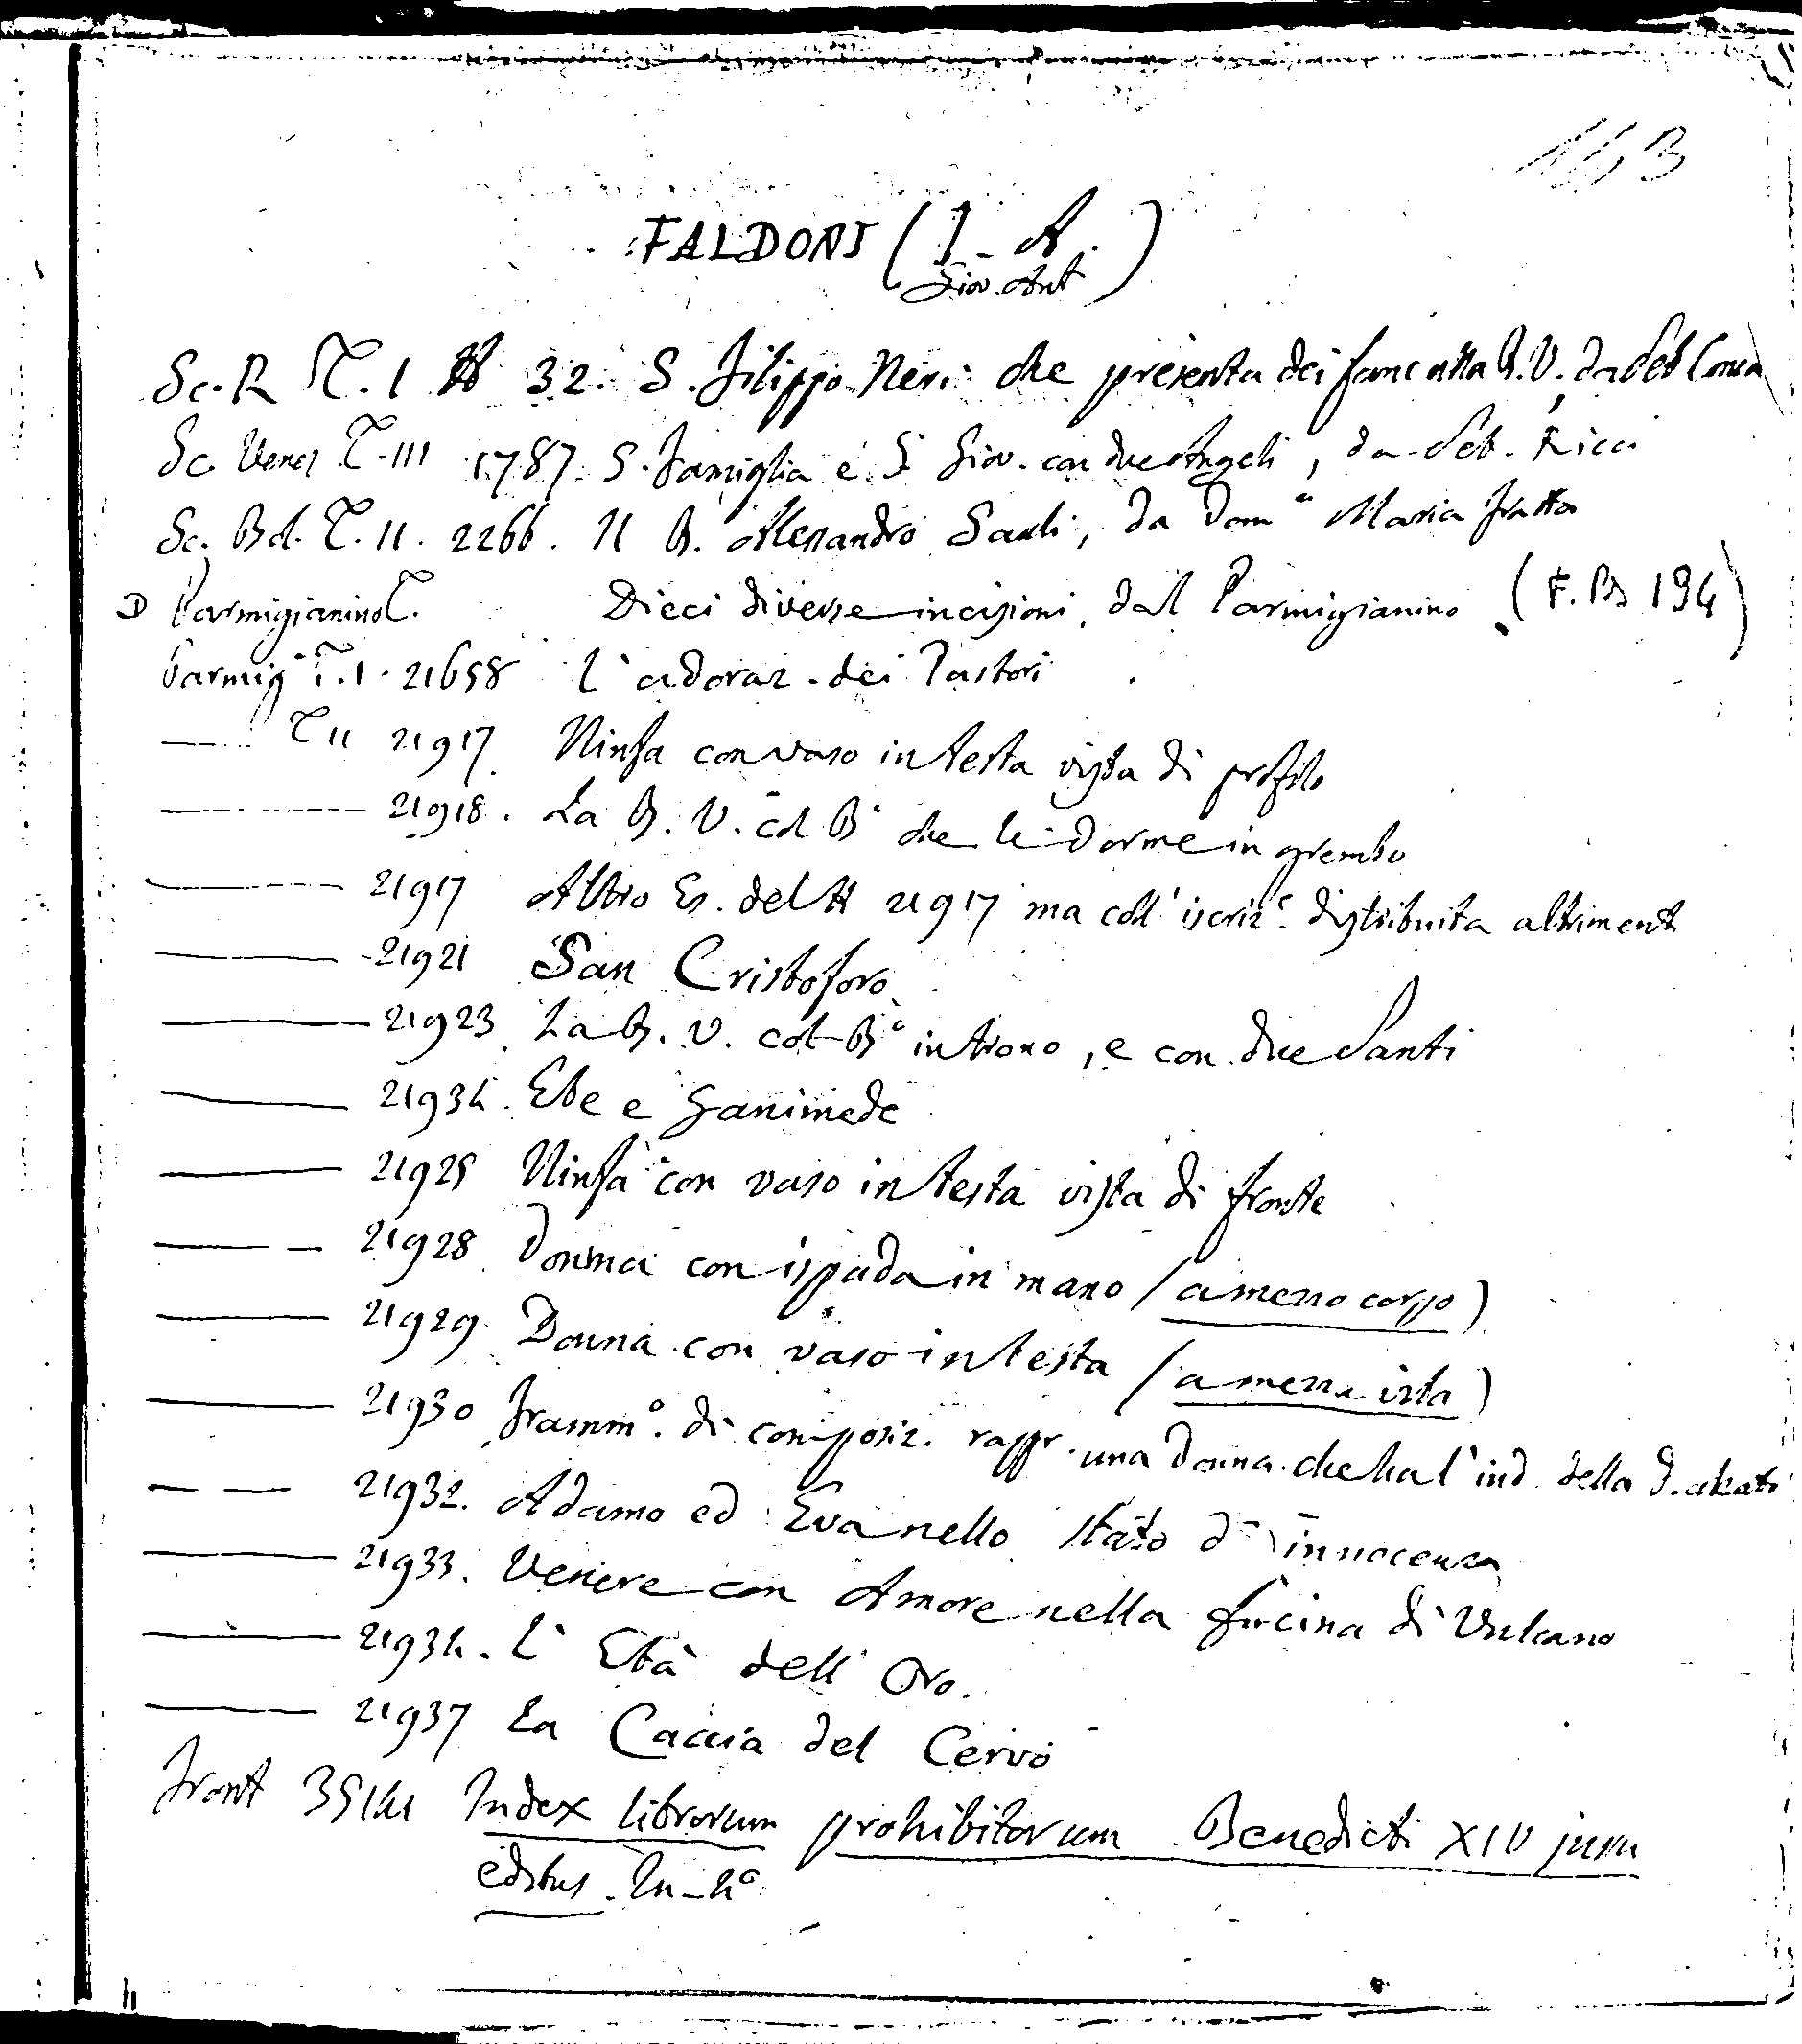 163
FALDONI (I. A.)
Giov. Ant
Sc. R T. I N 32. S. Filippo Neri che presenta dei fanc alla B. V. da Seb Conca
Sc Venez T. III 1787. S. Famiglia e S Giov. con due Angeli, da Seb. Ricci
Sc. Bol. T. II. 2266. Il B. Alessandro Sauli, da Domco Maria Fratta
D Parmigianino T. Dieci diverse incisioni dal Parmigianino (F. Bs 194)
Parmig T. I. 21658 L'adoraz. dei Pastori
— T II 21917 Ninfa con vaso in testa vista di profilo
— 21918. La B. V. col Bo che le dorme in grembo
— 21917 Altro Es. del N 21917 ma coll'iscrize. distribuita altrimenti
— 21921 San Cristoforo
— 21923 La B. V. col Bo in trono, e con due Santi
— 21934. Ebe e Ganimede
— 21925 Ninfa con vaso in testa vista di fronte
— 21928 Donna con ispada in mano (a mezzo corpo)
— 21929 Donna con vaso in testa (a mezza vita)
— 21930 Frammo. di composiz. rappr. una donna che ha l'ind. della d. alzato
— 21932. Adamo ed Eva nello stato d'innocenza
— 21933. Venere con Amore nella fucina di Vulcano
— 21934. L'Età dell'Oro.
— 21937 La Caccia del Cervo
Front 35141 Index librorum prohibitorum Benedicti XIV jussu
editus. In-4o